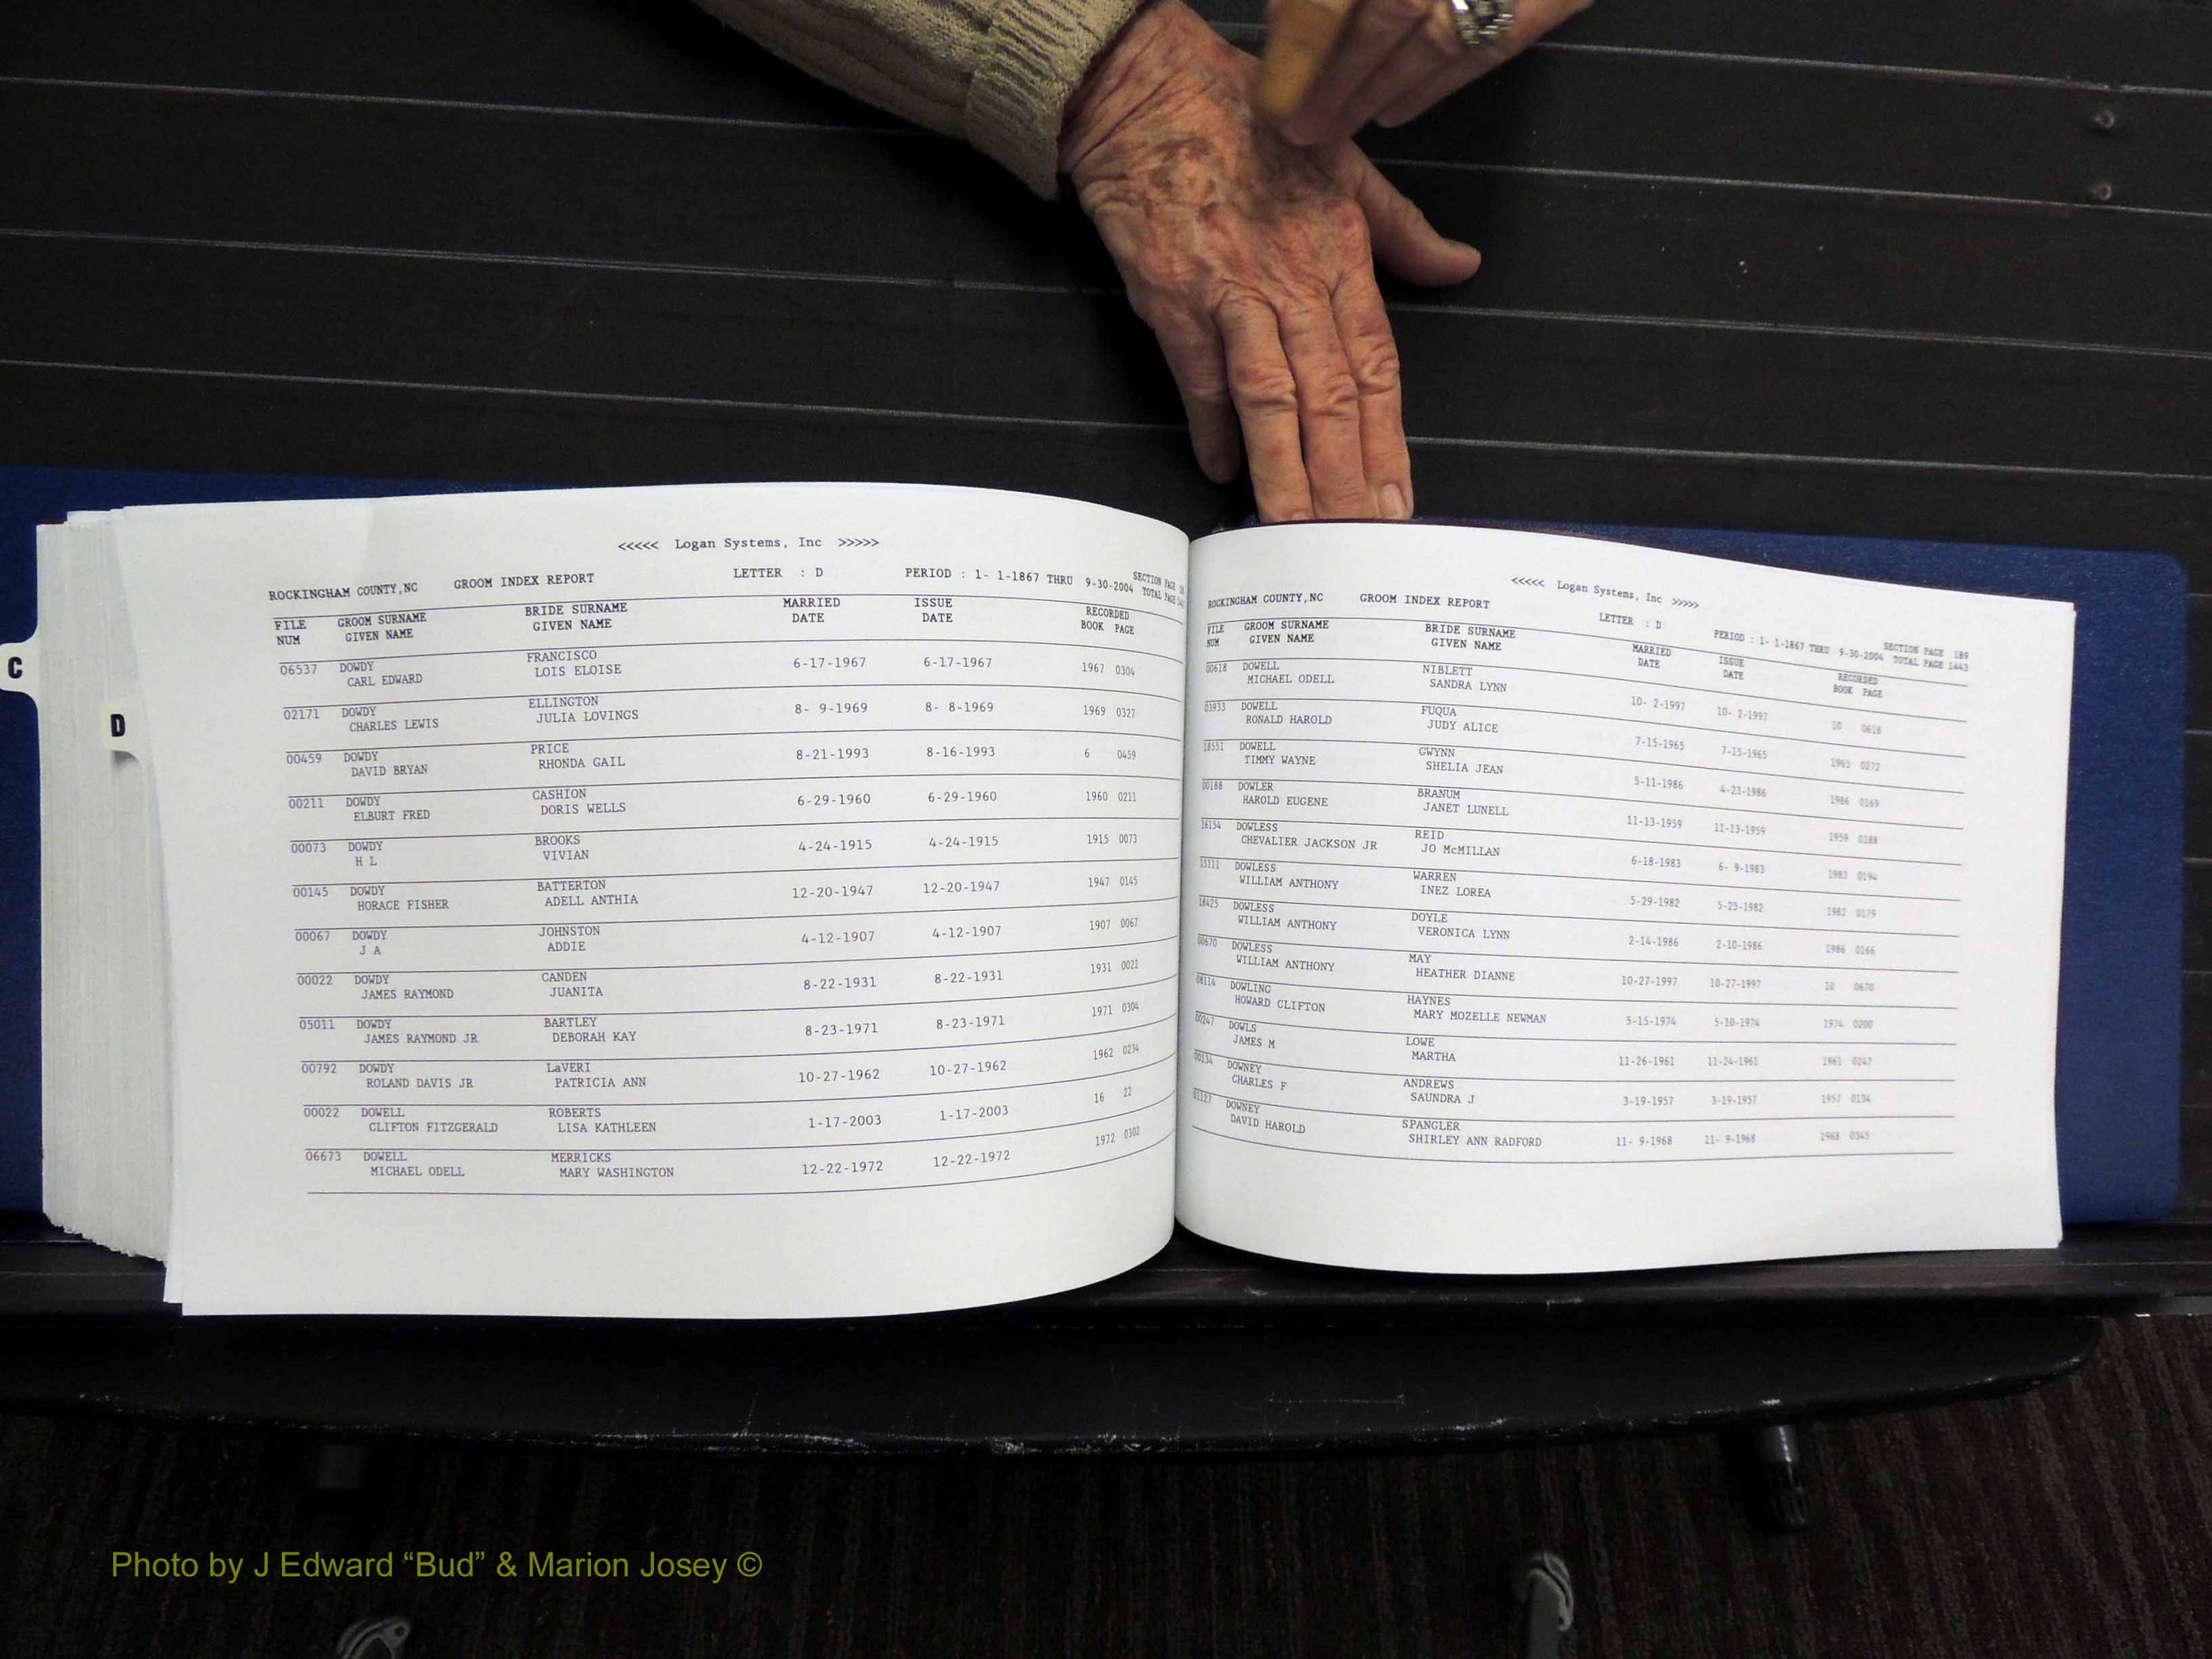 C
D
<<<<< Logan Systems, Inc >>>>>
ROCKINGHAM COUNTY,NC GROOM INDEX REPORT LETTER : D PERIOD : 1- 1-1867 THRU 9-30-2004 SECTION PAGE
TOTAL PAGE
FILE GROOM SURNAME BRIDE SURNAME MARRIED ISSUE RECORDED
NUM GIVEN NAME GIVEN NAME DATE DATE BOOK PAGE
06537 DOWDY FRANCISCO 6-17-1967 6-17-1967 1967 0304
CARL EDWARD LOIS ELOISE
02171 DOWDY ELLINGTON 8- 9-1969 8- 8-1969 1969 0327
CHARLES LEWIS JULIA LOVINGS
00459 DOWDY PRICE 8-21-1993 8-16-1993 6 0459
DAVID BRYAN RHONDA GAIL
00211 DOWDY CASHION 6-29-1960 6-29-1960 1960 0211
ELBURT FRED DORIS WELLS
00073 DOWDY BROOKS 4-24-1915 4-24-1915 1915 0073
H L VIVIAN
00145 DOWDY BATTERTON 12-20-1947 12-20-1947 1947 0145
HORACE FISHER ADELL ANTHIA
00067 DOWDY JOHNSTON 4-12-1907 4-12-1907 1907 0067
J A ADDIE
00022 DOWDY CANDEN 8-22-1931 8-22-1931 1931 0022
JAMES RAYMOND JUANITA
05011 DOWDY BARTLEY 8-23-1971 8-23-1971 1971 0304
JAMES RAYMOND JR DEBORAH KAY
00792 DOWDY LaVERI 10-27-1962 10-27-1962 1962 0234
ROLAND DAVIS JR PATRICIA ANN
00022 DOWELL ROBERTS 1-17-2003 1-17-2003 16 22
CLIFTON FITZGERALD LISA KATHLEEN
06673 DOWELL MERRICKS 12-22-1972 12-22-1972 1972 0302
MICHAEL ODELL MARY WASHINGTON
<<<<< Logan Systems, Inc >>>>>
ROCKINGHAM COUNTY,NC GROOM INDEX REPORT LETTER : D PERIOD : 1- 1-1867 THRU 9-30-2004 SECTION PAGE 189
TOTAL PAGE 1443
FILE GROOM SURNAME BRIDE SURNAME MARRIED ISSUE RECORDED
NUM GIVEN NAME GIVEN NAME DATE DATE BOOK PAGE
00618 DOWELL NIBLETT 10- 2-1997 10- 2-1997 10 0618
MICHAEL ODELL SANDRA LYNN
03933 DOWELL FUQUA 7-15-1965 7-15-1965 1965 0272
RONALD HAROLD JUDY ALICE
18551 DOWELL GWYNN 5-11-1986 4-23-1986 1986 0169
TIMMY WAYNE SHELIA JEAN
00188 DOWLER BRANUM 11-13-1959 11-13-1959 1959 0188
HAROLD EUGENE JANET LUNELL
16154 DOWLESS REID 6-18-1983 6- 9-1983 1983 0194
CHEVALIER JACKSON JR JO McMILLAN
15111 DOWLESS WARREN 5-29-1982 5-25-1982 1982 0179
WILLIAM ANTHONY INEZ LOREA
18425 DOWLESS DOYLE 2-14-1986 2-10-1986 1986 0166
WILLIAM ANTHONY VERONICA LYNN
00670 DOWLESS MAY 10-27-1997 10-27-1997 10 0670
WILLIAM ANTHONY HEATHER DIANNE
08114 DOWLING HAYNES 5-15-1974 5-10-1974 1974 0200
HOWARD CLIFTON MARY MOZELLE NEWMAN
00247 DOWLS LOWE 11-26-1961 11-24-1961 1961 0247
JAMES M MARTHA
00134 DOWNEY ANDREWS 3-19-1957 3-19-1957 1957 0134
CHARLES F SAUNDRA J
01127 DOWNEY SPANGLER 11- 9-1968 11- 9-1968 1968 0345
DAVID HAROLD SHIRLEY ANN RADFORD
Photo by J Edward “Bud” & Marion Josey ©